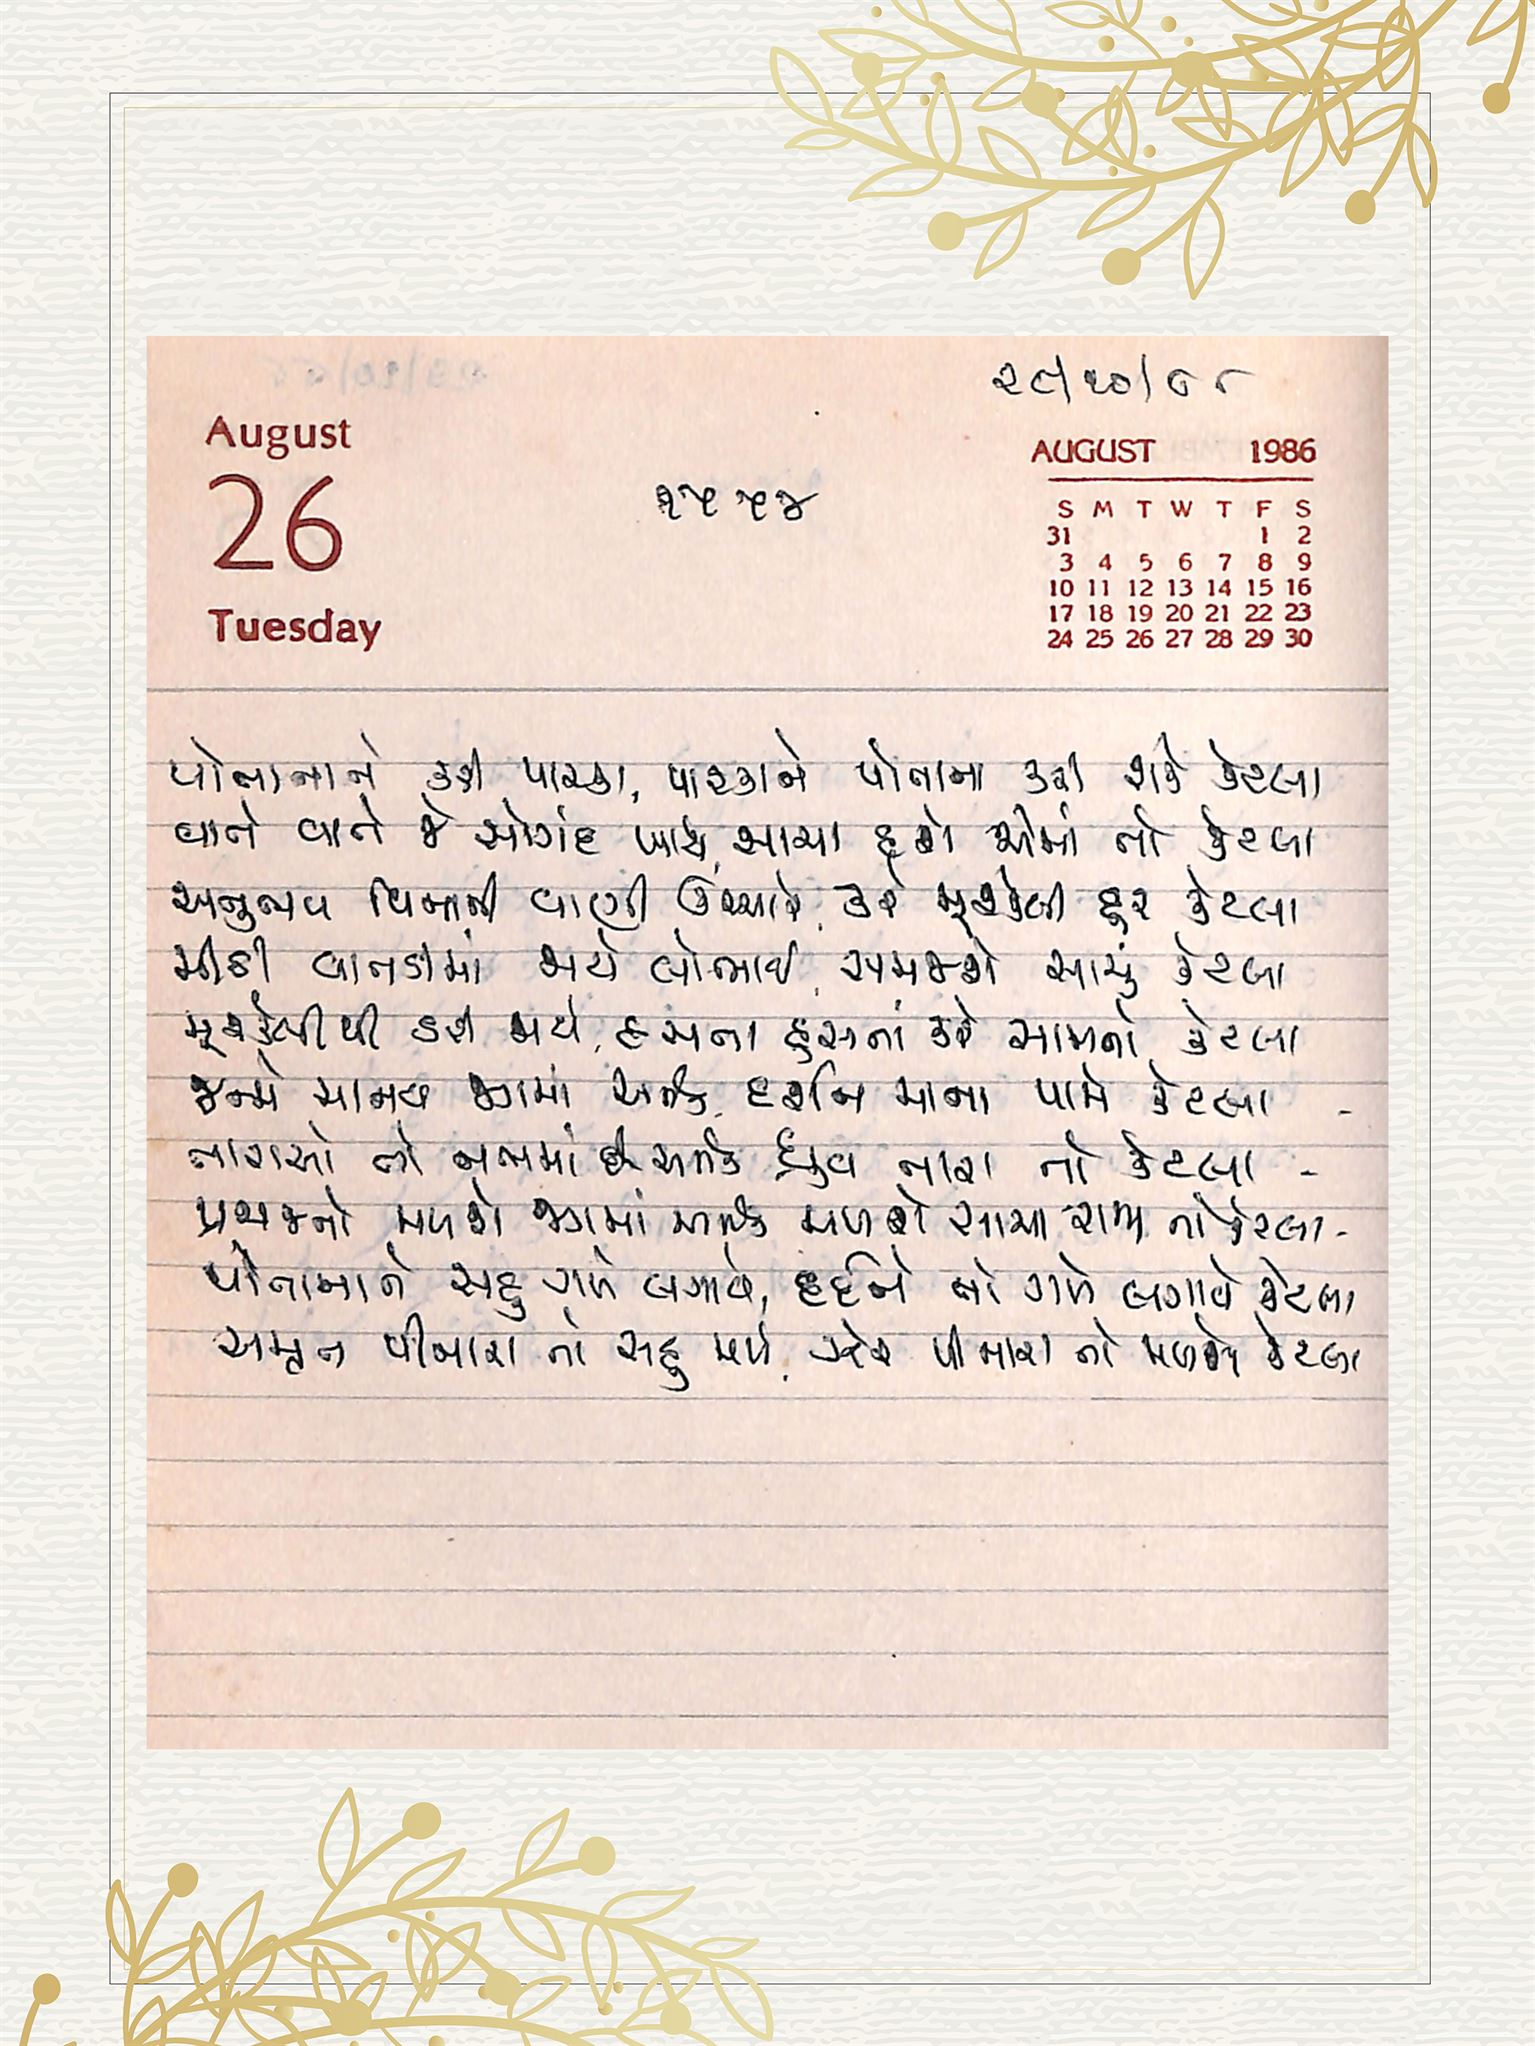 ૨૯/૧૦/૮૮
August
26
Tuesday
૧૫૫૪
AUGUST 1986
S M T W T F S
31 1 2
3 4 5 6 7 8 9
10 11 12 13 14 15 16
17 18 19 20 21 22 23
24 25 26 27 28 29 30
પોતાનાને કરી પારકા, પારકાને પોતાના કરી શકે કેટલા
વાતે વાતે જે સોગંદ ખાયે, સાચા હશે એમાં તો કેટલા
અનુભવ વિનાની વાણી ઉચ્ચારે, કરે મૂશ્કેલી દૂર કેટલા
મીઠી વાતડીમાં જાયે લોભાઈ, સમજશે સાચું કેટલા
મૂશ્કેલીથી ડરી જાયે, હસતા હસતાં કરે સામનો કેટલા
જન્મે માનવ જગમાં અનેક, દર્શન માતા પામે કેટલા -
તારાઓ તો નભમાં છે અનેક ધ્રુવ તારા તો કેટલા -
પ્રજાજનો મળશે જગમાં અનેક મળશે સાચા રાજા તો કેટલા -
પોતાનાને સહુ ગળે લગાવે, દર્દીને તો ગળે લગાવે કેટલા
અમૃત પીનારા તો સહુ મળે, ઝેર પીનારા તો મળશે કેટલા